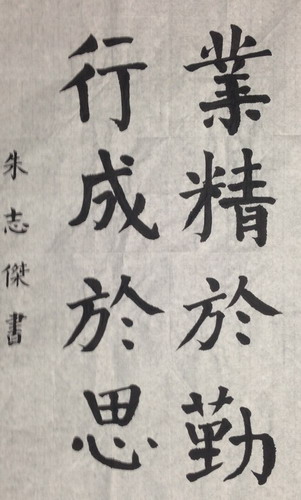 業精於勤
行成於思
朱志傑書